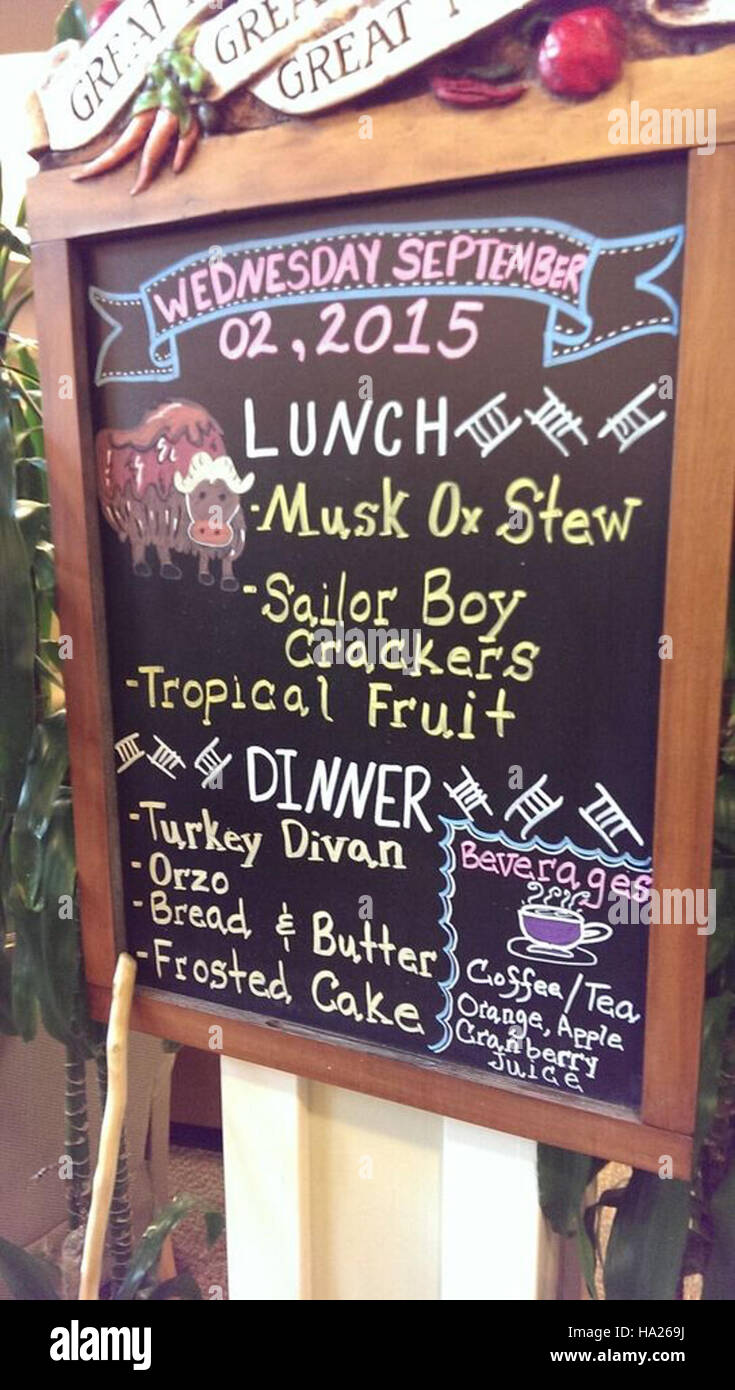 GREAT
GREAT
GREAT
WEDNESDAY SEPTEMBER
02, 2015
LUNCH
-Musk Ox Stew
-Sailor Boy
Crackers
-Tropical Fruit
DINNER
-Turkey Divan
-Orzo
-Bread & Butter
-Frosted Cake
Beverages
Coffee/Tea
Orange, Apple
Cranberry
Juice
alamy
a
alamy stock photo
HA269J
www.alamy.com